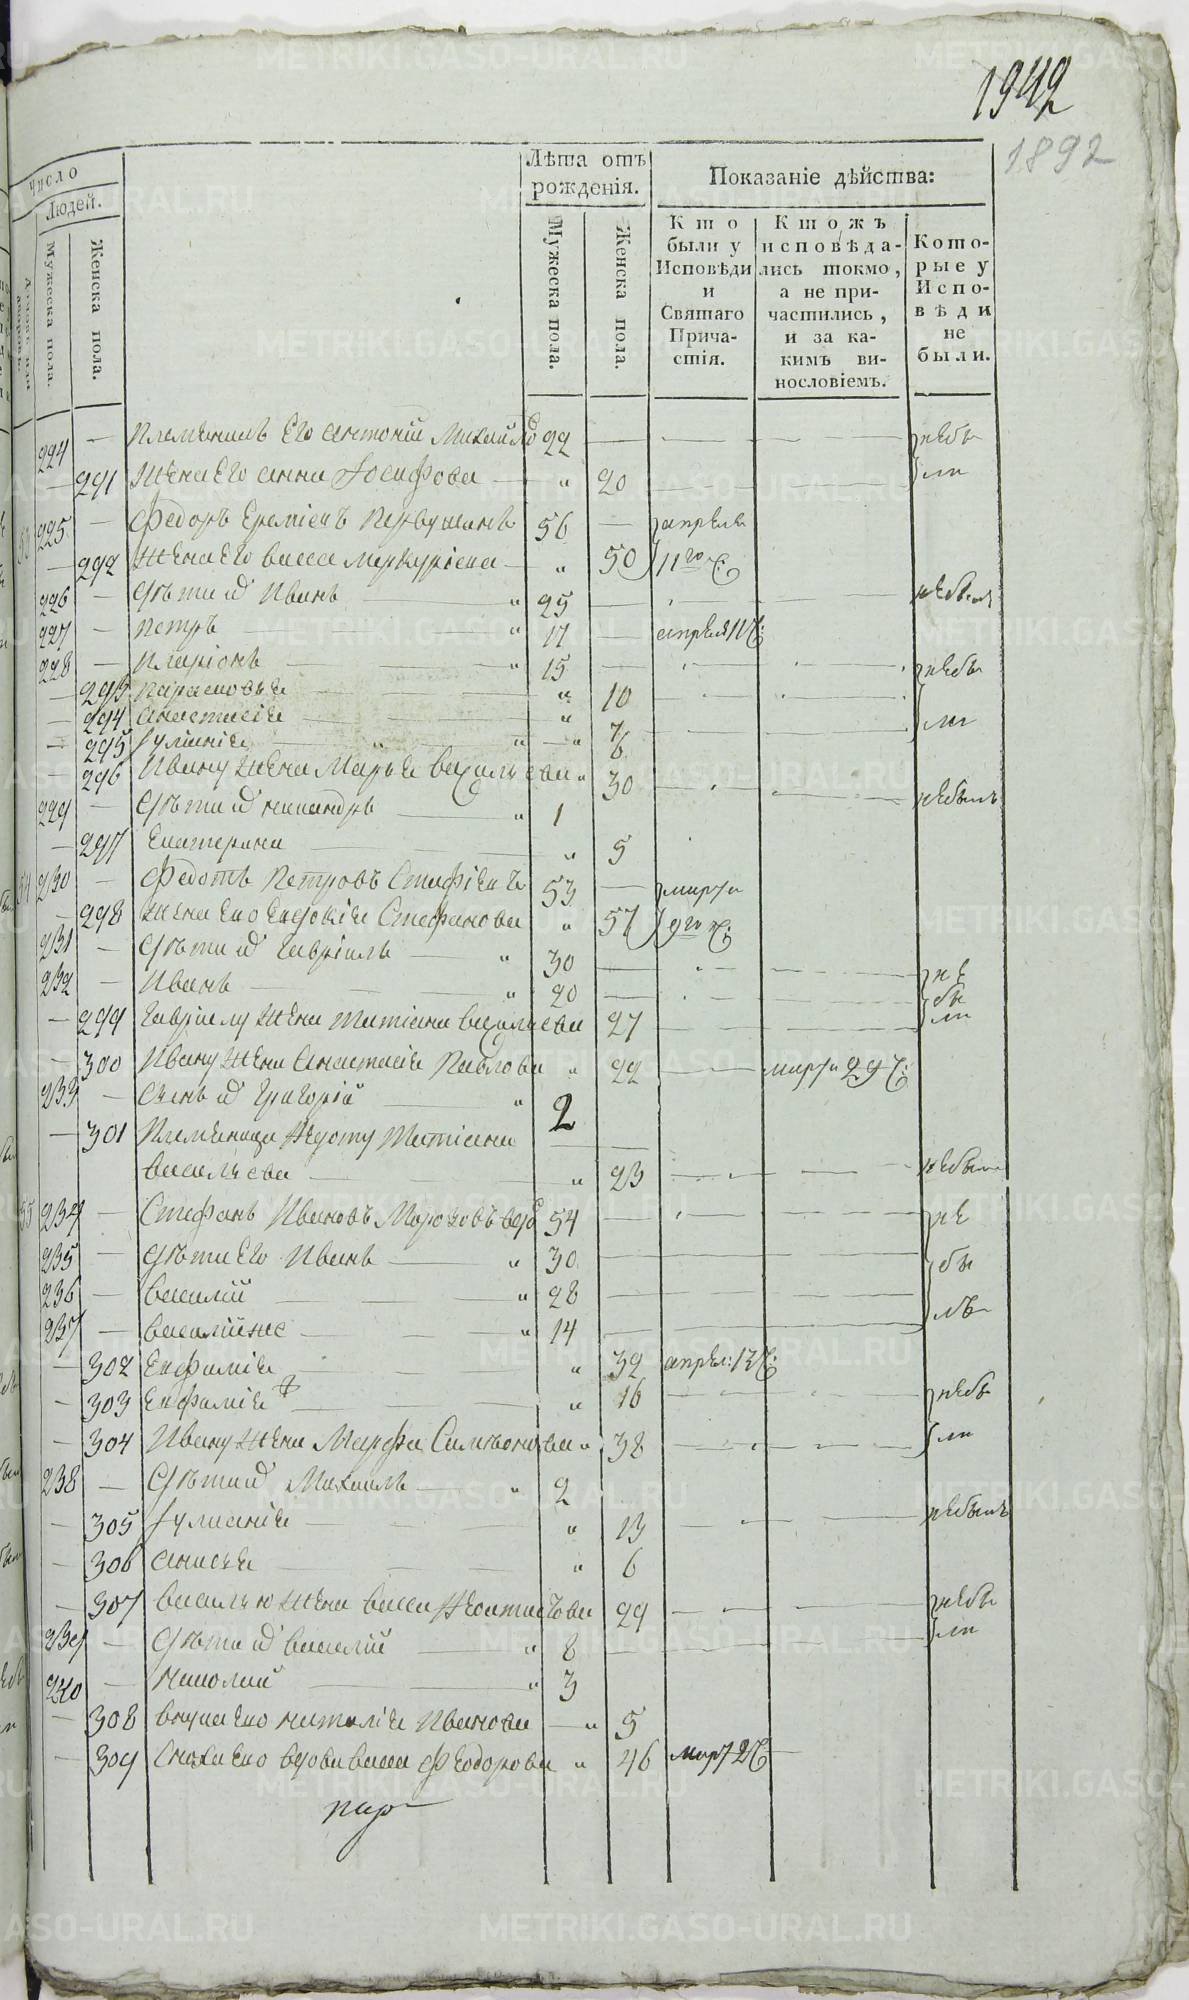 1942
1892
Число
Людей.
Мужеска пола.
Женска пола.
Лѣта отъ рожденія.
Мужеска пола.
Женска пола.
Показаніе дѣйства:
Кто были у Исповѣди и Святаго Прича-стія.
Ктожъ исповѣда-лись токмо, а не при-частились, и за ка-кимъ ви-нословіемъ.
Кото-рые у Испо-вѣди не были.
224 — Племѣникъ Его Антоній Михайло 22 — небы
— 291 Жена Его Анна Іосифова — " 20 — ли
225 — Федоръ Еремѣевъ 56 — апреля
— 292 Жена Его Васса Меркуріева — " 50 11го ч:
226 — Дѣти и͠ Иванъ " 25 — небылъ
227 — Петръ " 17 — апреля 11 ч:
228 — Иларіонъ " 15 — небы
— 293 Парасковья " 10
— 294 Анастасія " 7 ли
— 295 Іуліанія " 6
— 296 Ивану Жена Марья Васильева " 30
229 — Дѣти и͠ Никандръ " 1 небылъ
— 297 Екатерина " 5
54 230 — Федотъ Петровъ 53 — марта
— 298 Жена Ево Евдокія Стефанова " 57 9го ч:
231 — Дѣти и͠ Гавріилъ " 30 — не
232 — Иванъ " 20 — бы
— 299 Гавріилу Жена Татіана Васильева 27 ли
— 300 Ивану Жена Анастасія Павлова " 22 — марта 29 ч:
233 — Сынъ и͠ Григорій " 2
— 301 Племѣница Федоту Татіана
Васильева " 23 — небыла
55 234 — Стефанъ Ивановъ Морозовъ вдо 54 — не
235 — Дѣти Его Иванъ " 30 — бы
236 — Василій " 28 — лъ
237 — Василійже " 14
— 302 Евфимія " 32 апрел: 13 ч:
— 303 Евфимія " 16 — небы
— 304 Ивану Жена Марфа Симеонова " 38 — ли
238 — Дѣти и͠ Михаилъ " 2
— 305 Іуліанія " 13 — небылъ
— 306 Анисья " 6
— 307 Василью Жена Васса 29 — небы
239 — Дѣти и͠ Василій " 8 — ли
240 — Николай " 3
— 308 Внука Ево Наталія Иванова — " 5
— 309 Сноха Ево вдова Васса Феодорова " 46 март 2 ч —
METRIKI.GASO-URAL.RU